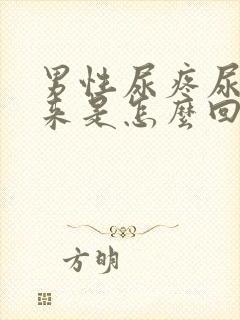 男性尿疼尿
来是怎麼回
方明